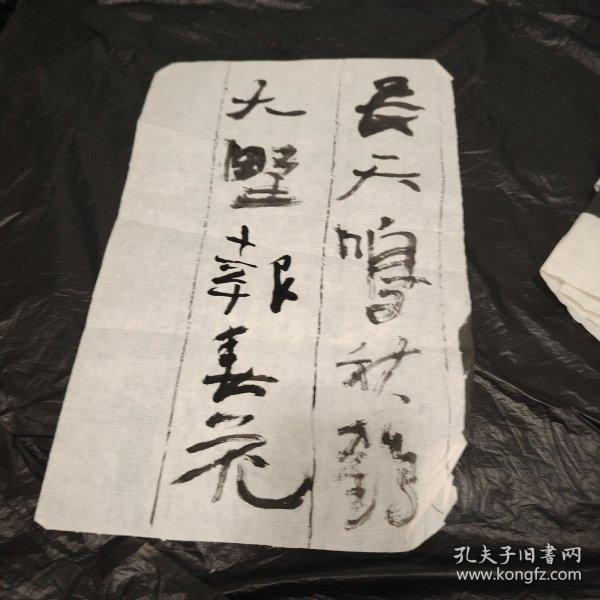 長天鳴秋鶴
大野報春花
孔夫子旧書网
www.kongfz.com